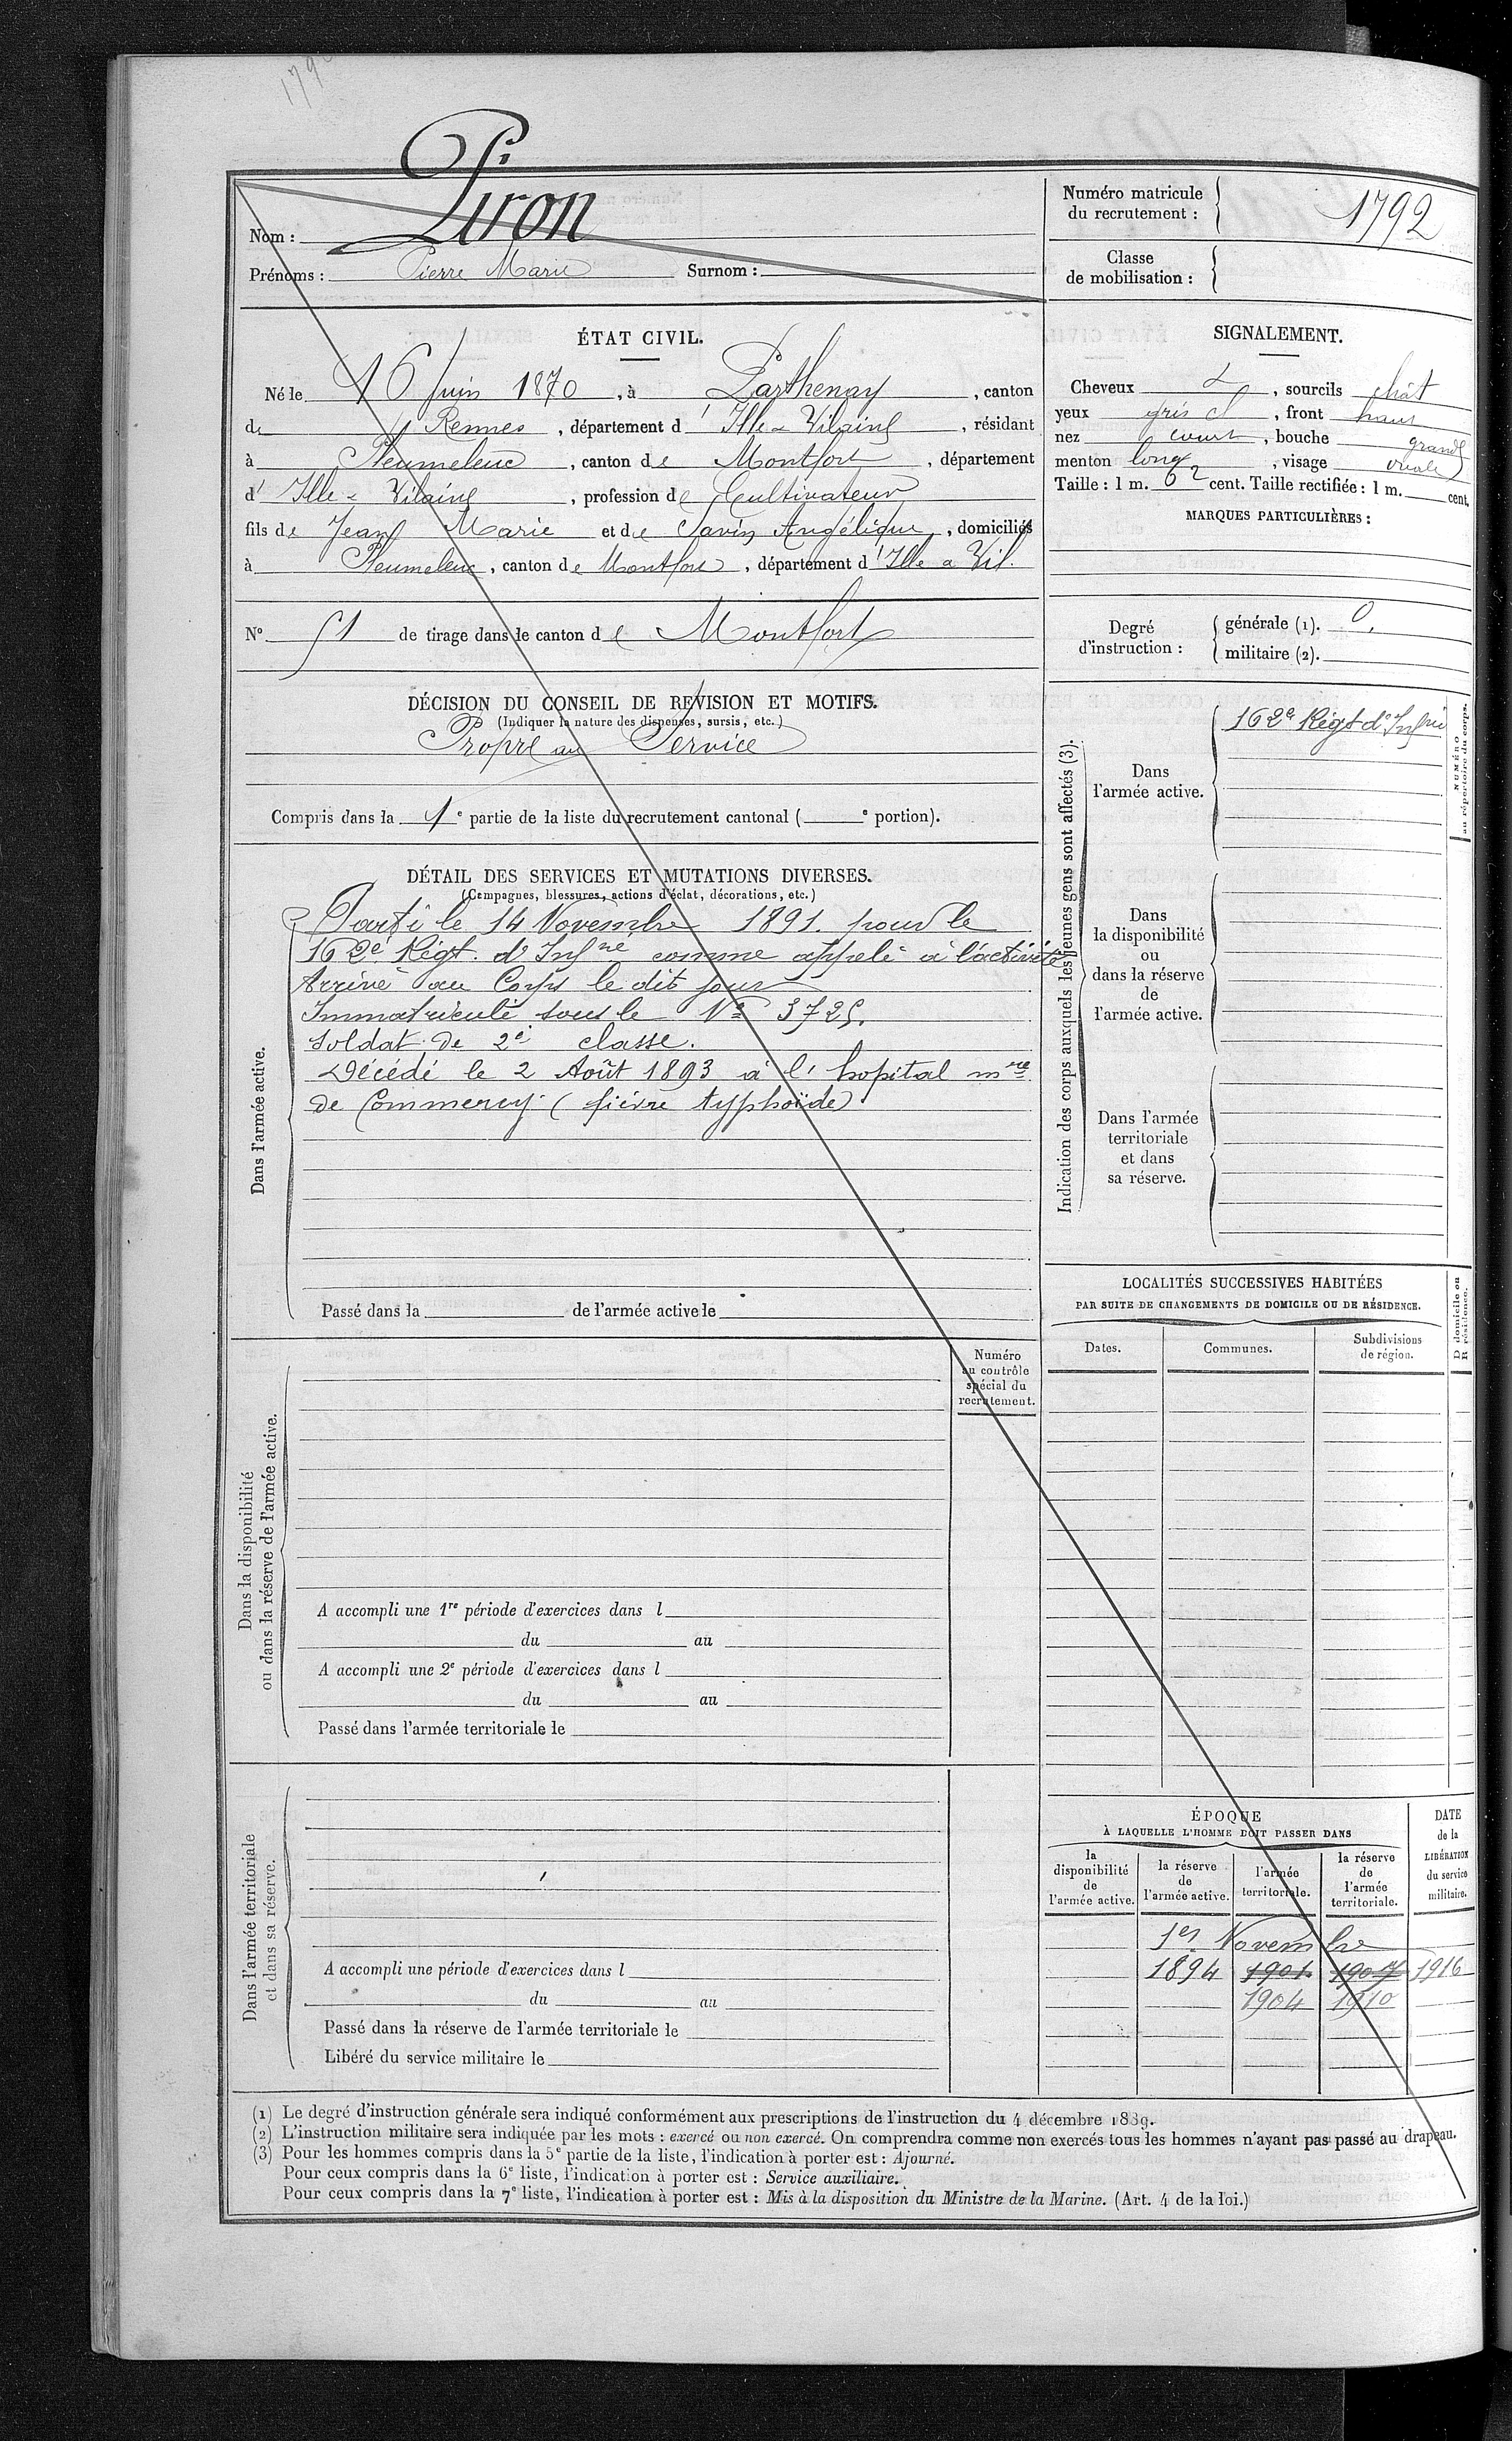 179
Piron
Nom :
Prénoms : Pierre Marie Surnom :
Numéro matricule
du recrutement : 1792
Classe
de mobilisation :
ÉTAT CIVIL.
Né le 16 Juin 1870, à Parthenay, canton
de Rennes, département d' Ille-&-Vilaine, résidant
à Pleumeleuc, canton de Montfort, département
d' Ille & Vilaine, profession de Cultivateur
fils de Jean Marie et de Savin Angélique, domiciliés
à Pleumeleuc, canton de Montfort, département d' Ille & Vil.
SIGNALEMENT.
Cheveux, sourcils chât
yeux gris cl, front haut
nez court, bouche grande
menton long, visage ovale
Taille : 1 m. 62 cent. Taille rectifiée : 1 m. cent.
MARQUES PARTICULIÈRES :
N° 51 de tirage dans le canton de Montfort
Degré
d'instruction :
générale (1). 0.
militaire (2).
DÉCISION DU CONSEIL DE REVISION ET MOTIFS.
(Indiquer la nature des dispenses, sursis, etc.)
Propre au Service
Compris dans la 1e partie de la liste du recrutement cantonal ( e portion).
DÉTAIL DES SERVICES ET MUTATIONS DIVERSES.
(Campagnes, blessures, actions d'éclat, décorations, etc.)
Dans l'armée active.
Parti le 14 Novembre 1891. pour le
162e Régt. d'Infrie comme appelé à l'activité
Arrivé au Corps le dit jour
Immatriculé sous le N° 3725.
Soldat de 2e classe.
Décédé le 2 Août 1893 à l'hopital mre
de Commercy (fièvre typhoïde)
Passé dans la de l'armée active le
Indication des corps auxquels les jeunes gens sont affectés (3).
Dans
l'armée active.
162e Régt d'Infrie
NUMÉRO
au répertoire du corps.
Dans
la disponibilité
ou
dans la réserve
de
l'armée active.
Dans l'armée
territoriale
et dans
sa réserve.
LOCALITÉS SUCCESSIVES HABITÉES
PAR SUITE DE CHANGEMENTS DE DOMICILE OU DE RÉSIDENCE.
Dates.
Communes.
Subdivisions
de région.
D domicile ou
R résidence.
Dans la disponibilité
ou dans la réserve de l'armée active.
Numéro
au contrôle
spécial du
recrutement.
A accompli une 1re période d'exercices dans l
du au
A accompli une 2e période d'exercices dans l
du au
Passé dans l'armée territoriale le
Dans l'armée territoriale
et dans sa réserve.
A accompli une période d'exercices dans l
du au
Passé dans la réserve de l'armée territoriale le
Libéré du service militaire le
ÉPOQUE
À LAQUELLE L'HOMME DOIT PASSER DANS
la
disponibilité
de
l'armée active.
la réserve
de
l'armée active.
l'armée
territoriale.
la réserve
de
l'armée
territoriale.
DATE
de la
LIBÉRATION
du service
militaire.
1er Novembre
1894 1901 1907 1916
1904 1910
(1) Le degré d'instruction générale sera indiqué conformément aux prescriptions de l'instruction du 4 décembre 1889.
(2) L'instruction militaire sera indiquée par les mots : exercé ou non exercé. On comprendra comme non exercés tous les hommes n'ayant pas passé au drapeau.
(3) Pour les hommes compris dans la 5e partie de la liste, l'indication à porter est : Ajourné.
Pour ceux compris dans la 6e liste, l'indication à porter est : Service auxiliaire.
Pour ceux compris dans la 7e liste, l'indication à porter est : Mis à la disposition du Ministre de la Marine. (Art. 4 de la loi.)